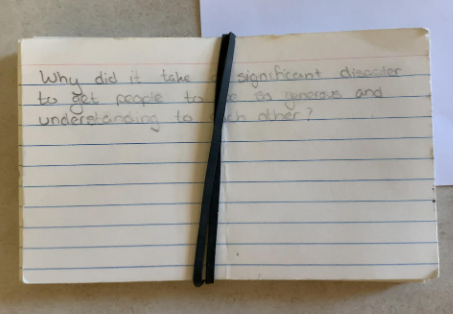 Why did it take a significant disaster
to get people to be so generous and
understanding to each other?